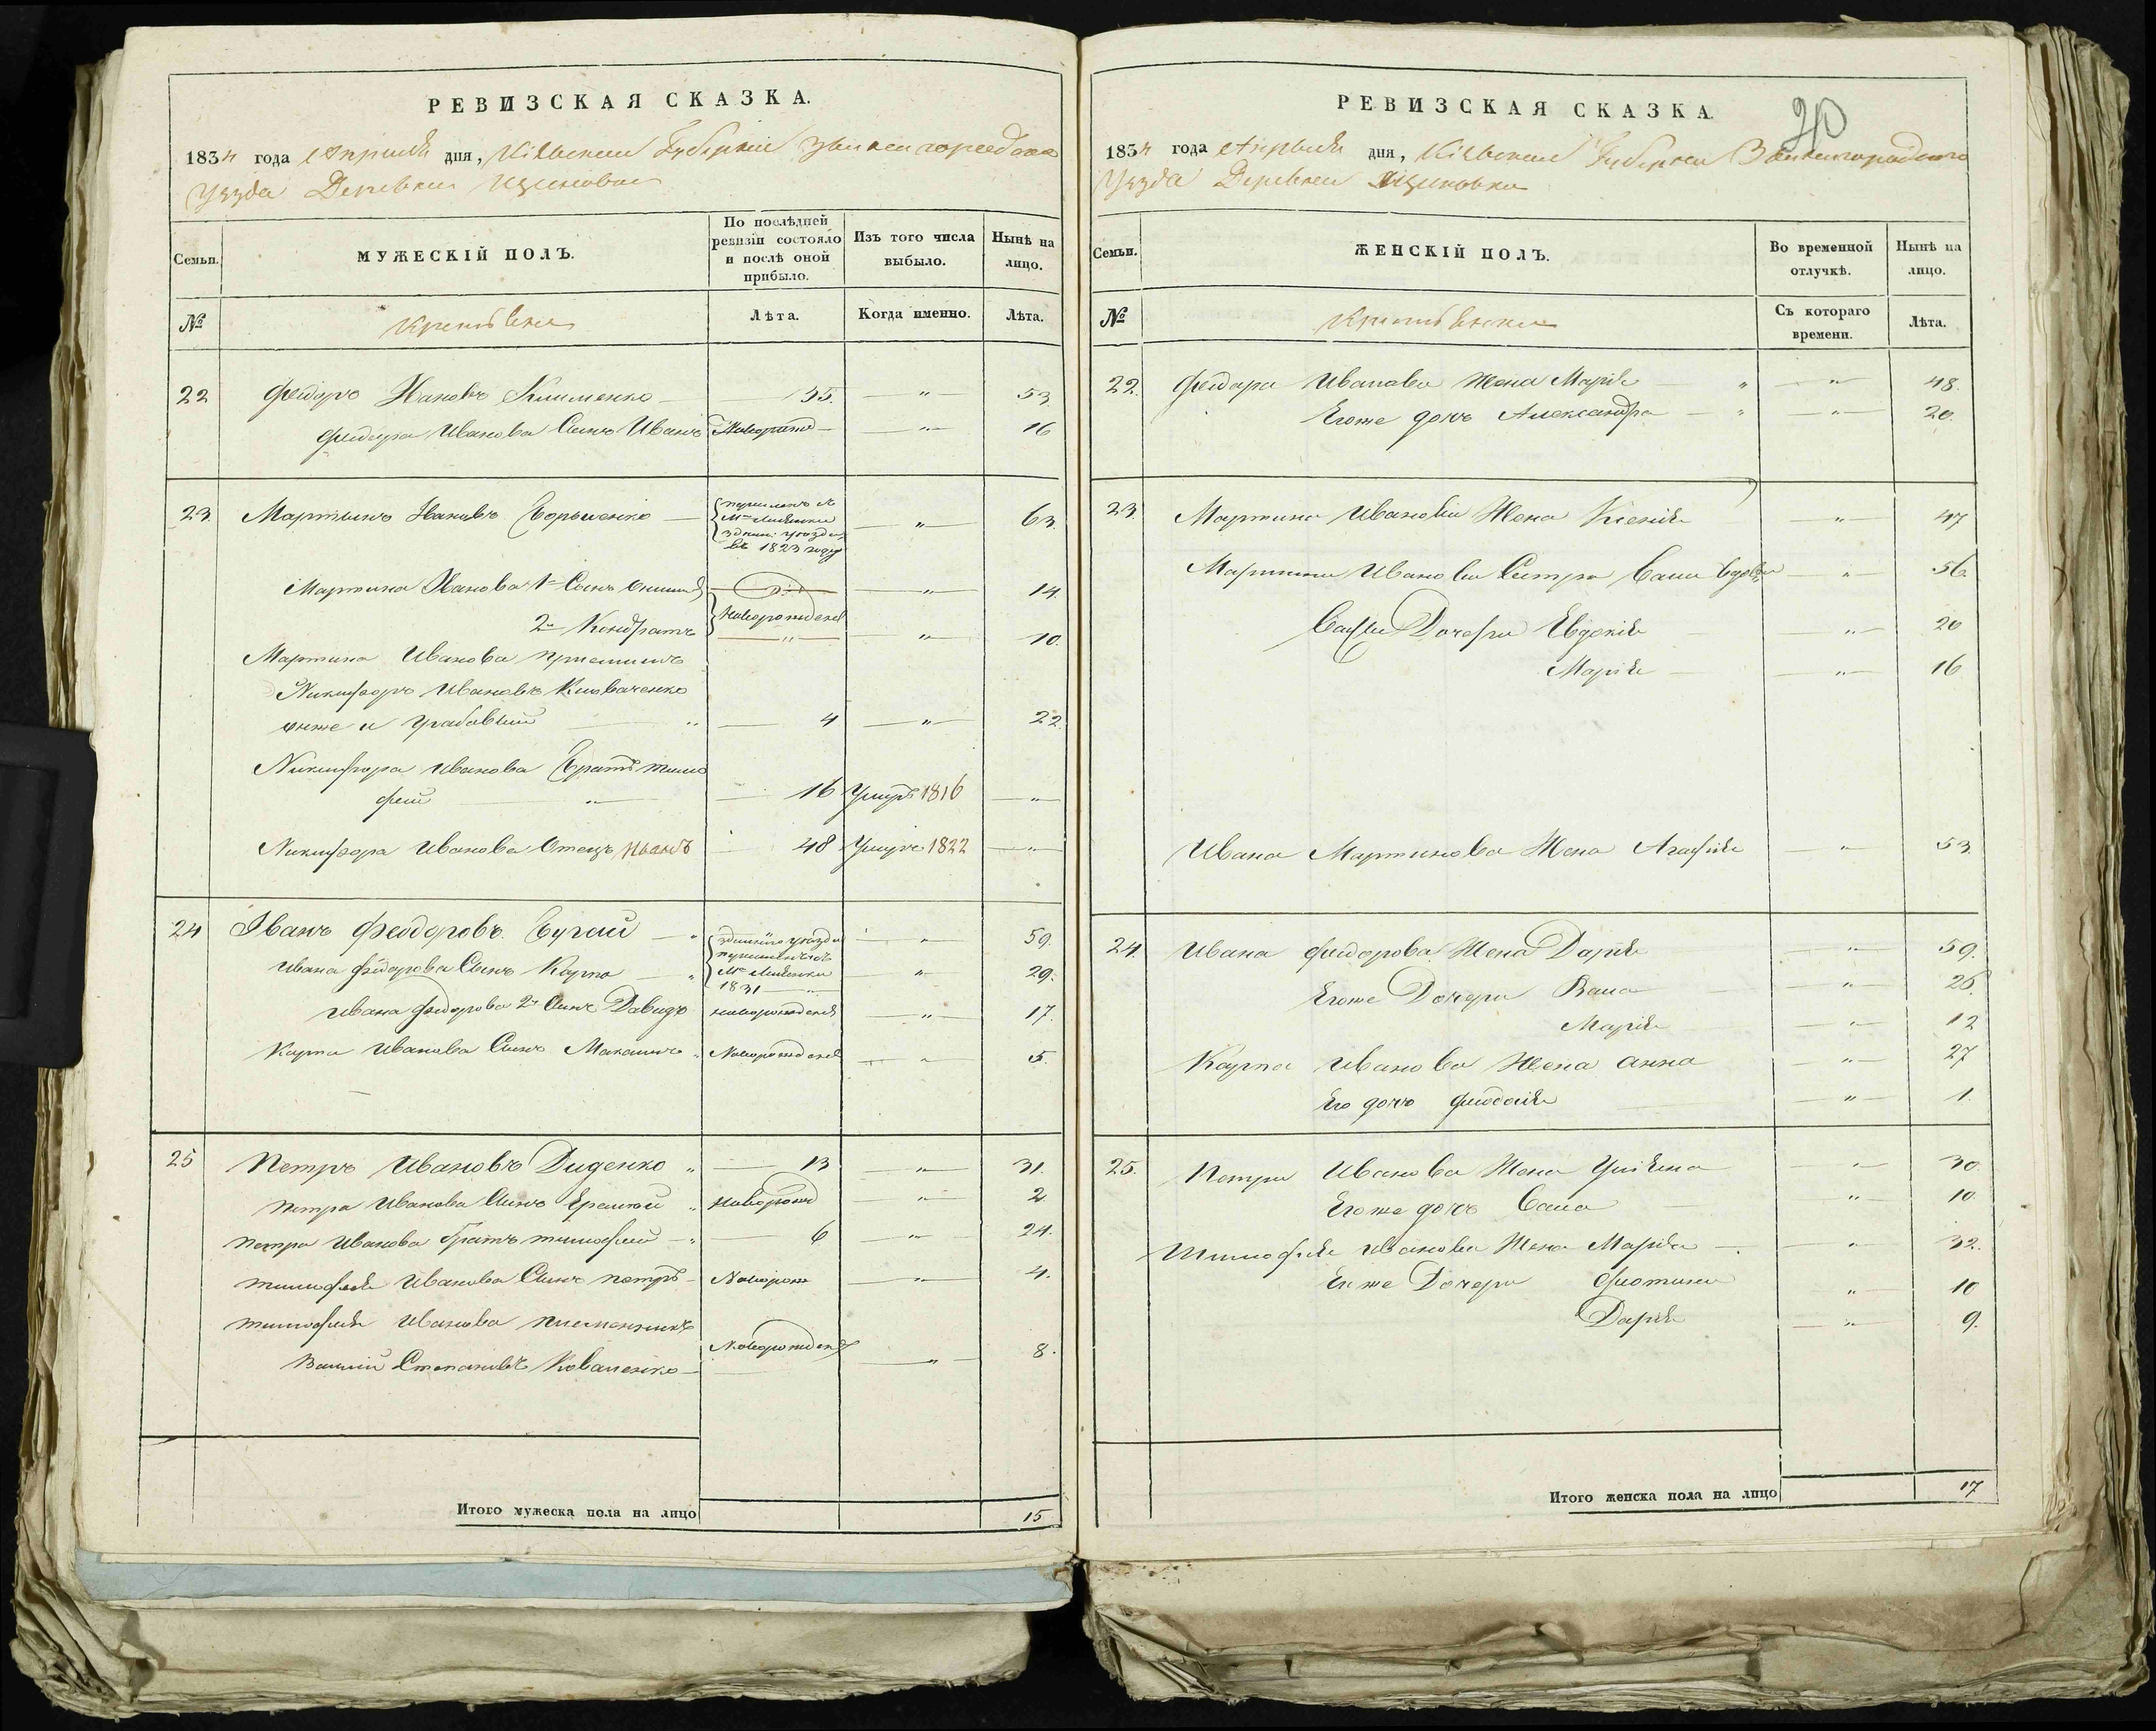 РЕВИЗСКАЯ СКАЗКА.
1834 года Апреля дня, Кіевской Губерніи Звенигородскаго
Уѣзда Деревни
Семьи.
МУЖЕСКІЙ ПОЛЪ.
По послѣдней ревизіи состояло и послѣ оной прибыло.
Изъ того числа выбыло.
Нынѣ на лицо.
№
Лѣта.
Когда именно.
Лѣта.
22 Федоръ Ивановъ Клименко 35. " 53
Федора Иванова Сынъ Иванъ Новорожд " 16
23 Мартынъ Ивановъ " 63.
въ 1823 году
Мартина Иванова 1й Сынъ " 14.
2й Кондратъ Новорожденъ " 10.
Мартина Иванова
Никифоръ Ивановъ
онже и 4 " 22
Никифора Иванова Братъ Тимо
фей " 16 Умеръ 1816 "
Никифора Иванова Отецъ Иванъ 48 Умеръ 1822 "
24 Иванъ Феодоровъ Бугай " 59.
Ивана Федорова Сынъ Карпо 1831 " 29.
Ивана Федорова 2й Сынъ Давидъ новорожденъ " 17.
Карпа Иванова Сынъ Новорожденъ " 5.
25 Петръ Ивановъ Диденко " 13 " 31.
Петра Иванова Сынъ Еремѣй " новорожд " 2
Петра Иванова братъ тимофей " 6 " 24.
тимофея Иванова Сынъ петръ Новорож " 4.
тимофея Иванова
Степановъ Коваленко Новорожденъ " 8.
Итого мужеска пола на лицо 15
РЕВИЗСКАЯ СКАЗКА.
20
1834 года Апреля дня, Кіевской Губерніи Звенигородскаго
Уѣзда Деревни
Семьи.
ЖЕНСКІЙ ПОЛЪ.
Во временной отлучкѣ.
Нынѣ на лицо.
№
Съ котораго времени.
Лѣта.
22. Федора Иванова Жена Марія " " 48.
Егоже дочь Александра " " 20.
23. Мартина Иванова Жена Ксенія " 47
Мартина Иванова Сестра вдова " 56.
Дочери Евдокія " 20
Марія " 16
Ивана Мартинова Жена Агафія " 53.
24. Ивана Федорова Жена Дарія " 59.
Егоже Дочери " 26.
Марія " 12
Карпа Иванова Жена анна " 27
Его дочь феодосія " 1.
25. Петра Иванова Жена Уліяна " 30.
Егоже дочь " 10.
Тимофея Иванова Жена Марія " 32.
Егоже Дочери Фіотина " 10
Дарія " 9.
Итого женска пола на лицо 17